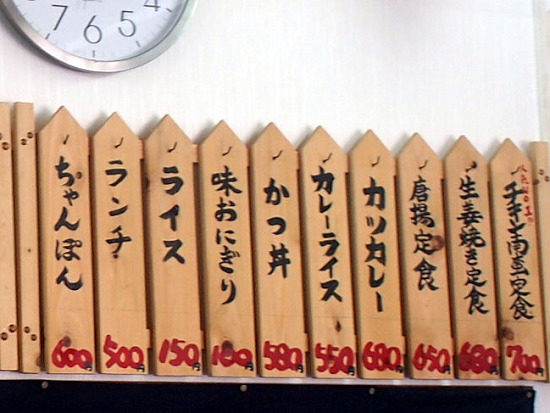 4
5
6
7
人気NO.1
チキン南蛮定食
700円
生姜焼き定食
680円
唐揚定食
650円
カツカレー
680円
カレーライス
550円
かつ丼
580円
味おにぎり
100円
ライス
150円
ランチ
500円
ちゃんぽん
600円